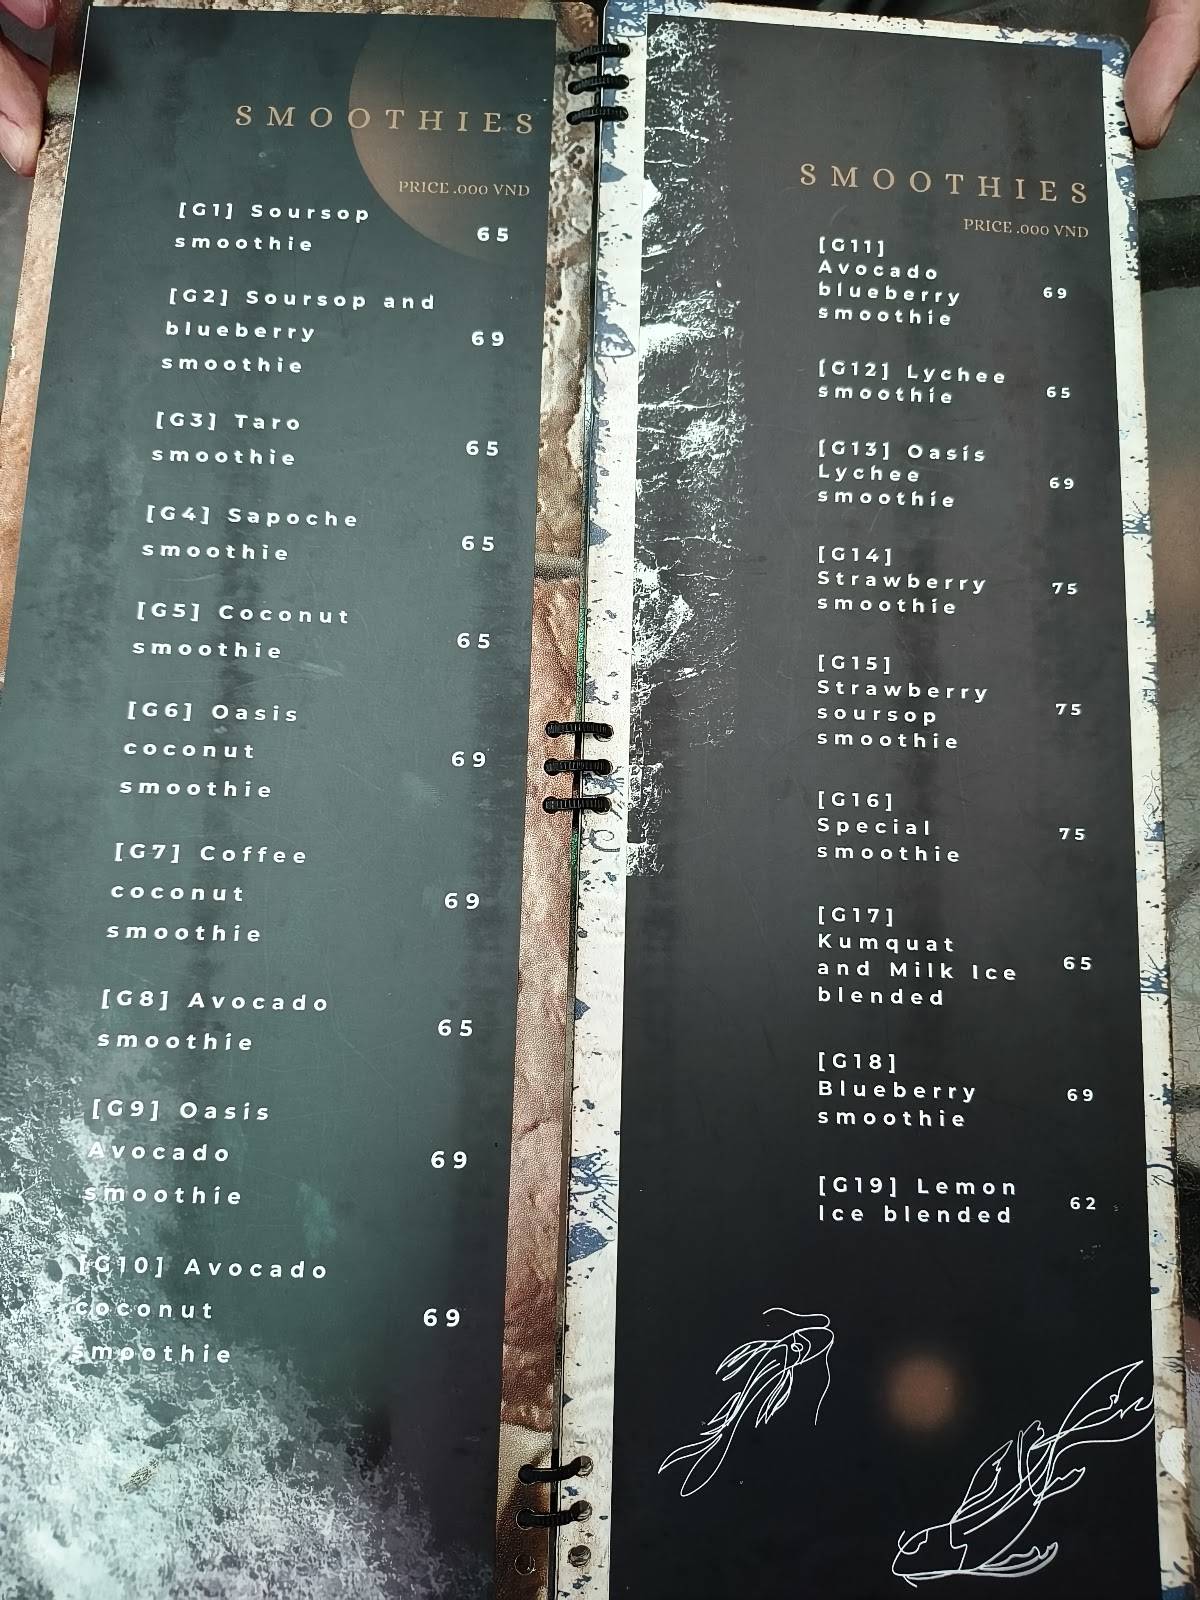 SMOOTHIES
PRICE .000 VND
[G1] Soursop
smoothie
65
[G2] Soursop and
blueberry
smoothie
69
[G3] Taro
smoothie
65
[G4] Sapoche
smoothie
65
[G5] Coconut
smoothie
65
[G6] Oasis
coconut
smoothie
69
[G7] Coffee
coconut
smoothie
69
[G8] Avocado
smoothie
65
[G9] Oasis
Avocado
smoothie
69
[G10] Avocado
coconut
smoothie
69
SMOOTHIES
PRICE .000 VND
[G11]
Avocado
blueberry
smoothie
69
[G12] Lychee
smoothie
65
[G13] Oasis
Lychee
smoothie
69
[G14]
Strawberry
smoothie
75
[G15]
Strawberry
soursop
smoothie
75
[G16]
Special
smoothie
75
[G17]
Kumquat
and Milk Ice
blended
65
[G18]
Blueberry
smoothie
69
[G19] Lemon
Ice blended
62